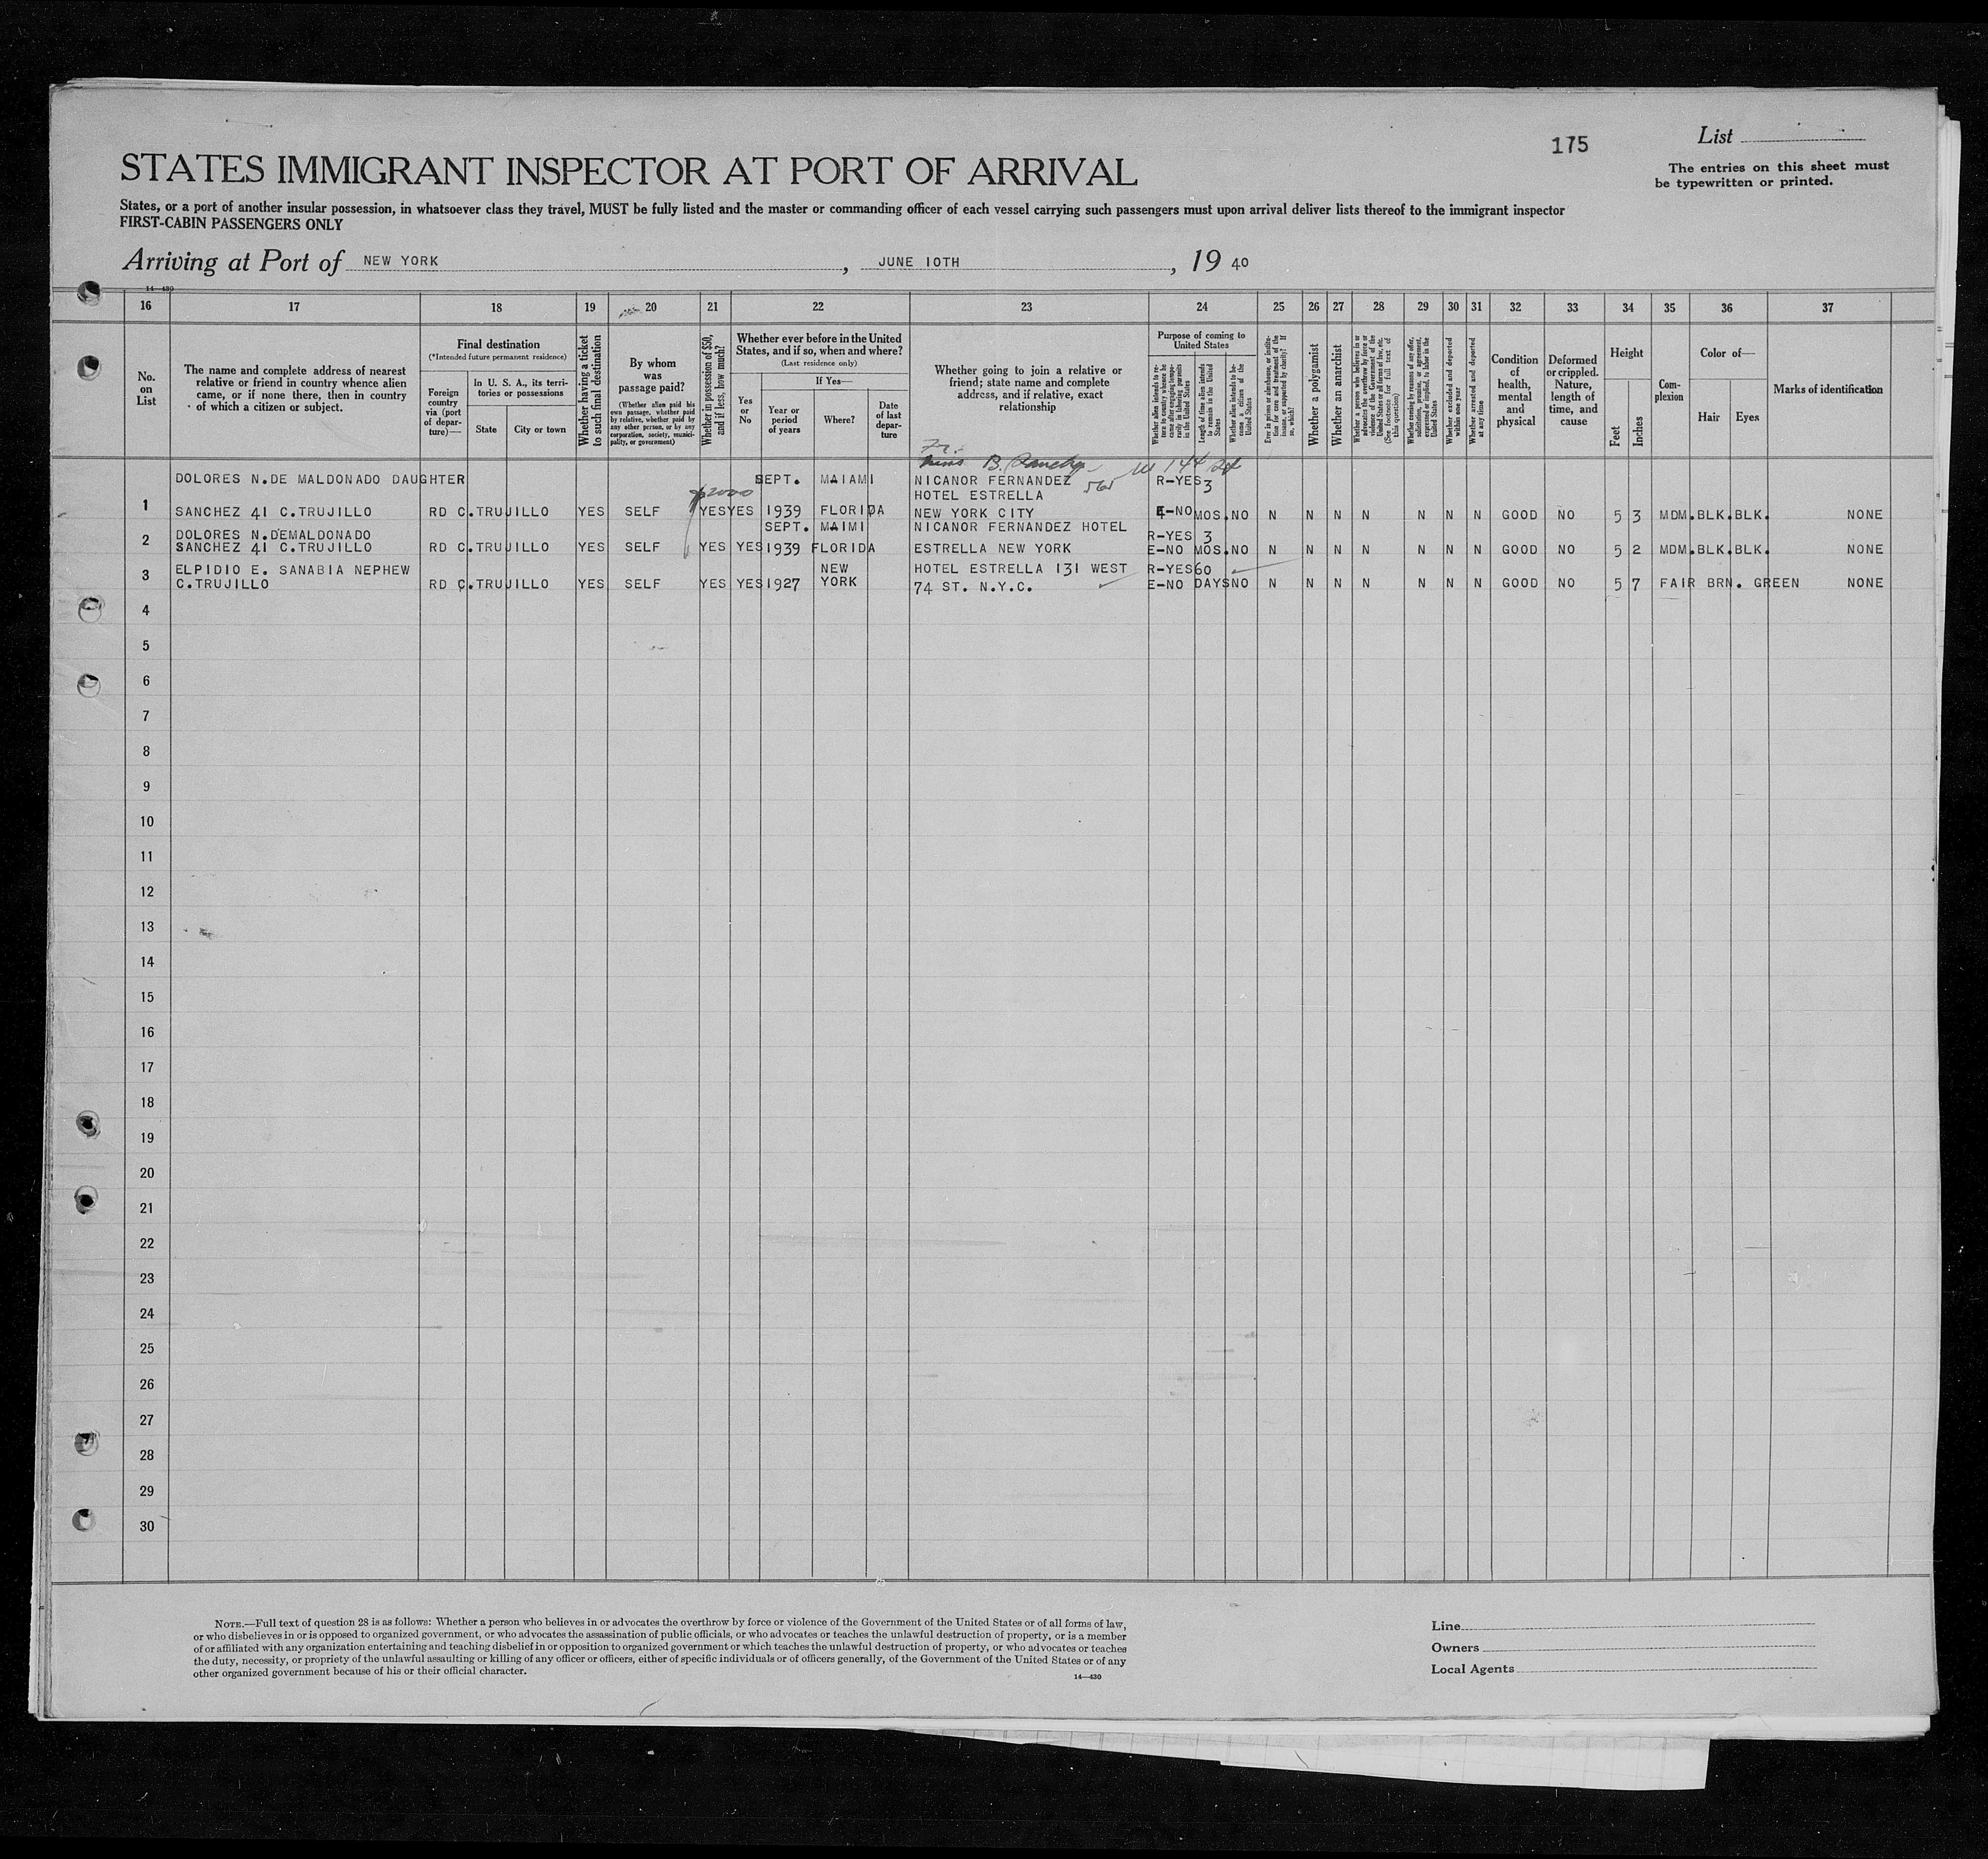 175
List
The entries on this sheet must
be typewritten or printed.
STATES IMMIGRANT INSPECTOR AT PORT OF ARRIVAL
States, or a port of another insular possession, in whatsoever class they travel, MUST be fully listed and the master or commanding officer of each vessel carrying such passengers must upon arrival deliver lists thereof to the immigrant inspector
FIRST-CABIN PASSENGERS ONLY
Arriving at Port of NEW YORK , JUNE 10TH , 19 40
14-430
16 17 18 19 20 21 22 23 24 25 26 27 28 29 30 31 32 33 34 35 36 37
No.
on
List
The name and complete address of nearest
relative or friend in country whence alien
came, or if none there, then in country
of which a citizen or subject.
Final destination
(*Intended future permanent residence)
Foreign
country
via (port
of depar-
ture)—
In U. S. A., its terri-
tories or possessions
State
City or town
Whether having a ticket
to such final destination
By whom
was
passage paid?
(Whether alien paid his
own passage, whether paid
by relative, whether paid by
any other person, or by any
corporation, society, munici-
pality, or government)
Whether in possession of $50,
and if less, how much?
Whether ever before in the United
States, and if so, when and where?
(Last residence only)
Yes
or
No
If Yes—
Year or
period
of years
Where?
Date
of last
depar-
ture
Whether going to join a relative or
friend; state name and complete
address, and if relative, exact
relationship
Purpose of coming to
United States
Whether alien intends to re-
turn to country whence he
came after engaging tempo-
rarily in laboring pursuits
in the United States
Length of time alien intends
to remain in the United
States
Whether alien intends to be-
come a citizen of the
United States
Ever in prison or almshouse, or institu-
tion for care and treatment of the
insane, or supported by charity? If
so, which?
Whether a polygamist
Whether an anarchist
Whether a person who believes in or
advocates the overthrow by force or
violence of the Government of the
United States or all forms of law, etc.
(See footnote for full text of
this question)
Whether coming by reasons of any offer,
solicitation, promise, or agreement,
expressed or implied, to labor in the
United States
Whether excluded and deported
within one year
Whether arrested and deported
at any time
Condition
of
health,
mental
and
physical
Deformed
or crippled.
Nature,
length of
time, and
cause
Height
Feet
Inches
Com-
plexion
Color of—
Hair
Eyes
Marks of identification
B. Sanchez 565 W 144 St
DOLORES N.DE MALDONADO DAUGHTER SEPT. MAIAMI NICANOR FERNANDEZ R-YES 3
HOTEL ESTRELLA
1 SANCHEZ 41 C.TRUJILLO RD C.TRUJILLO YES SELF YES YES 1939 FLORIDA NEW YORK CITY E-NO MOS. NO N N N N N N N GOOD NO 5 3 MDM. BLK. BLK. NONE
DOLORES N.DEMALDONADO SEPT. MAIMI NICANOR FERNANDEZ HOTEL R-YES 3
2 SANCHEZ 41 C.TRUJILLO RD C.TRUJILLO YES SELF YES YES 1939 FLORIDA ESTRELLA NEW YORK E-NO MOS. NO N N N N N N N GOOD NO 5 2 MDM. BLK. BLK. NONE
3 ELPIDIO E. SANABIA NEPHEW NEW HOTEL ESTRELLA 131 WEST R-YES 60
C.TRUJILLO RD C.TRUJILLO YES SELF YES YES 1927 YORK 74 ST. N.Y.C. E-NO DAYS NO N N N N N N N GOOD NO 5 7 FAIR BRN. GREEN NONE
4
5
6
7
8
9
10
11
12
13
14
15
16
17
18
19
20
21
22
23
24
25
26
27
28
29
30
NOTE.—Full text of question 28 is as follows: Whether a person who believes in or advocates the overthrow by force or violence of the Government of the United States or of all forms of law,
or who disbelieves in or is opposed to organized government, or who advocates the assassination of public officials, or who advocates or teaches the unlawful destruction of property, or is a member
of or affiliated with any organization entertaining and teaching disbelief in or opposition to organized government or which teaches the unlawful destruction of property, or who advocates or teaches
the duty, necessity, or propriety of the unlawful assaulting or killing of any officer or officers, either of specific individuals or of officers generally, of the Government of the United States or of any
other organized government because of his or their official character.
14-430
Line
Owners
Local Agents